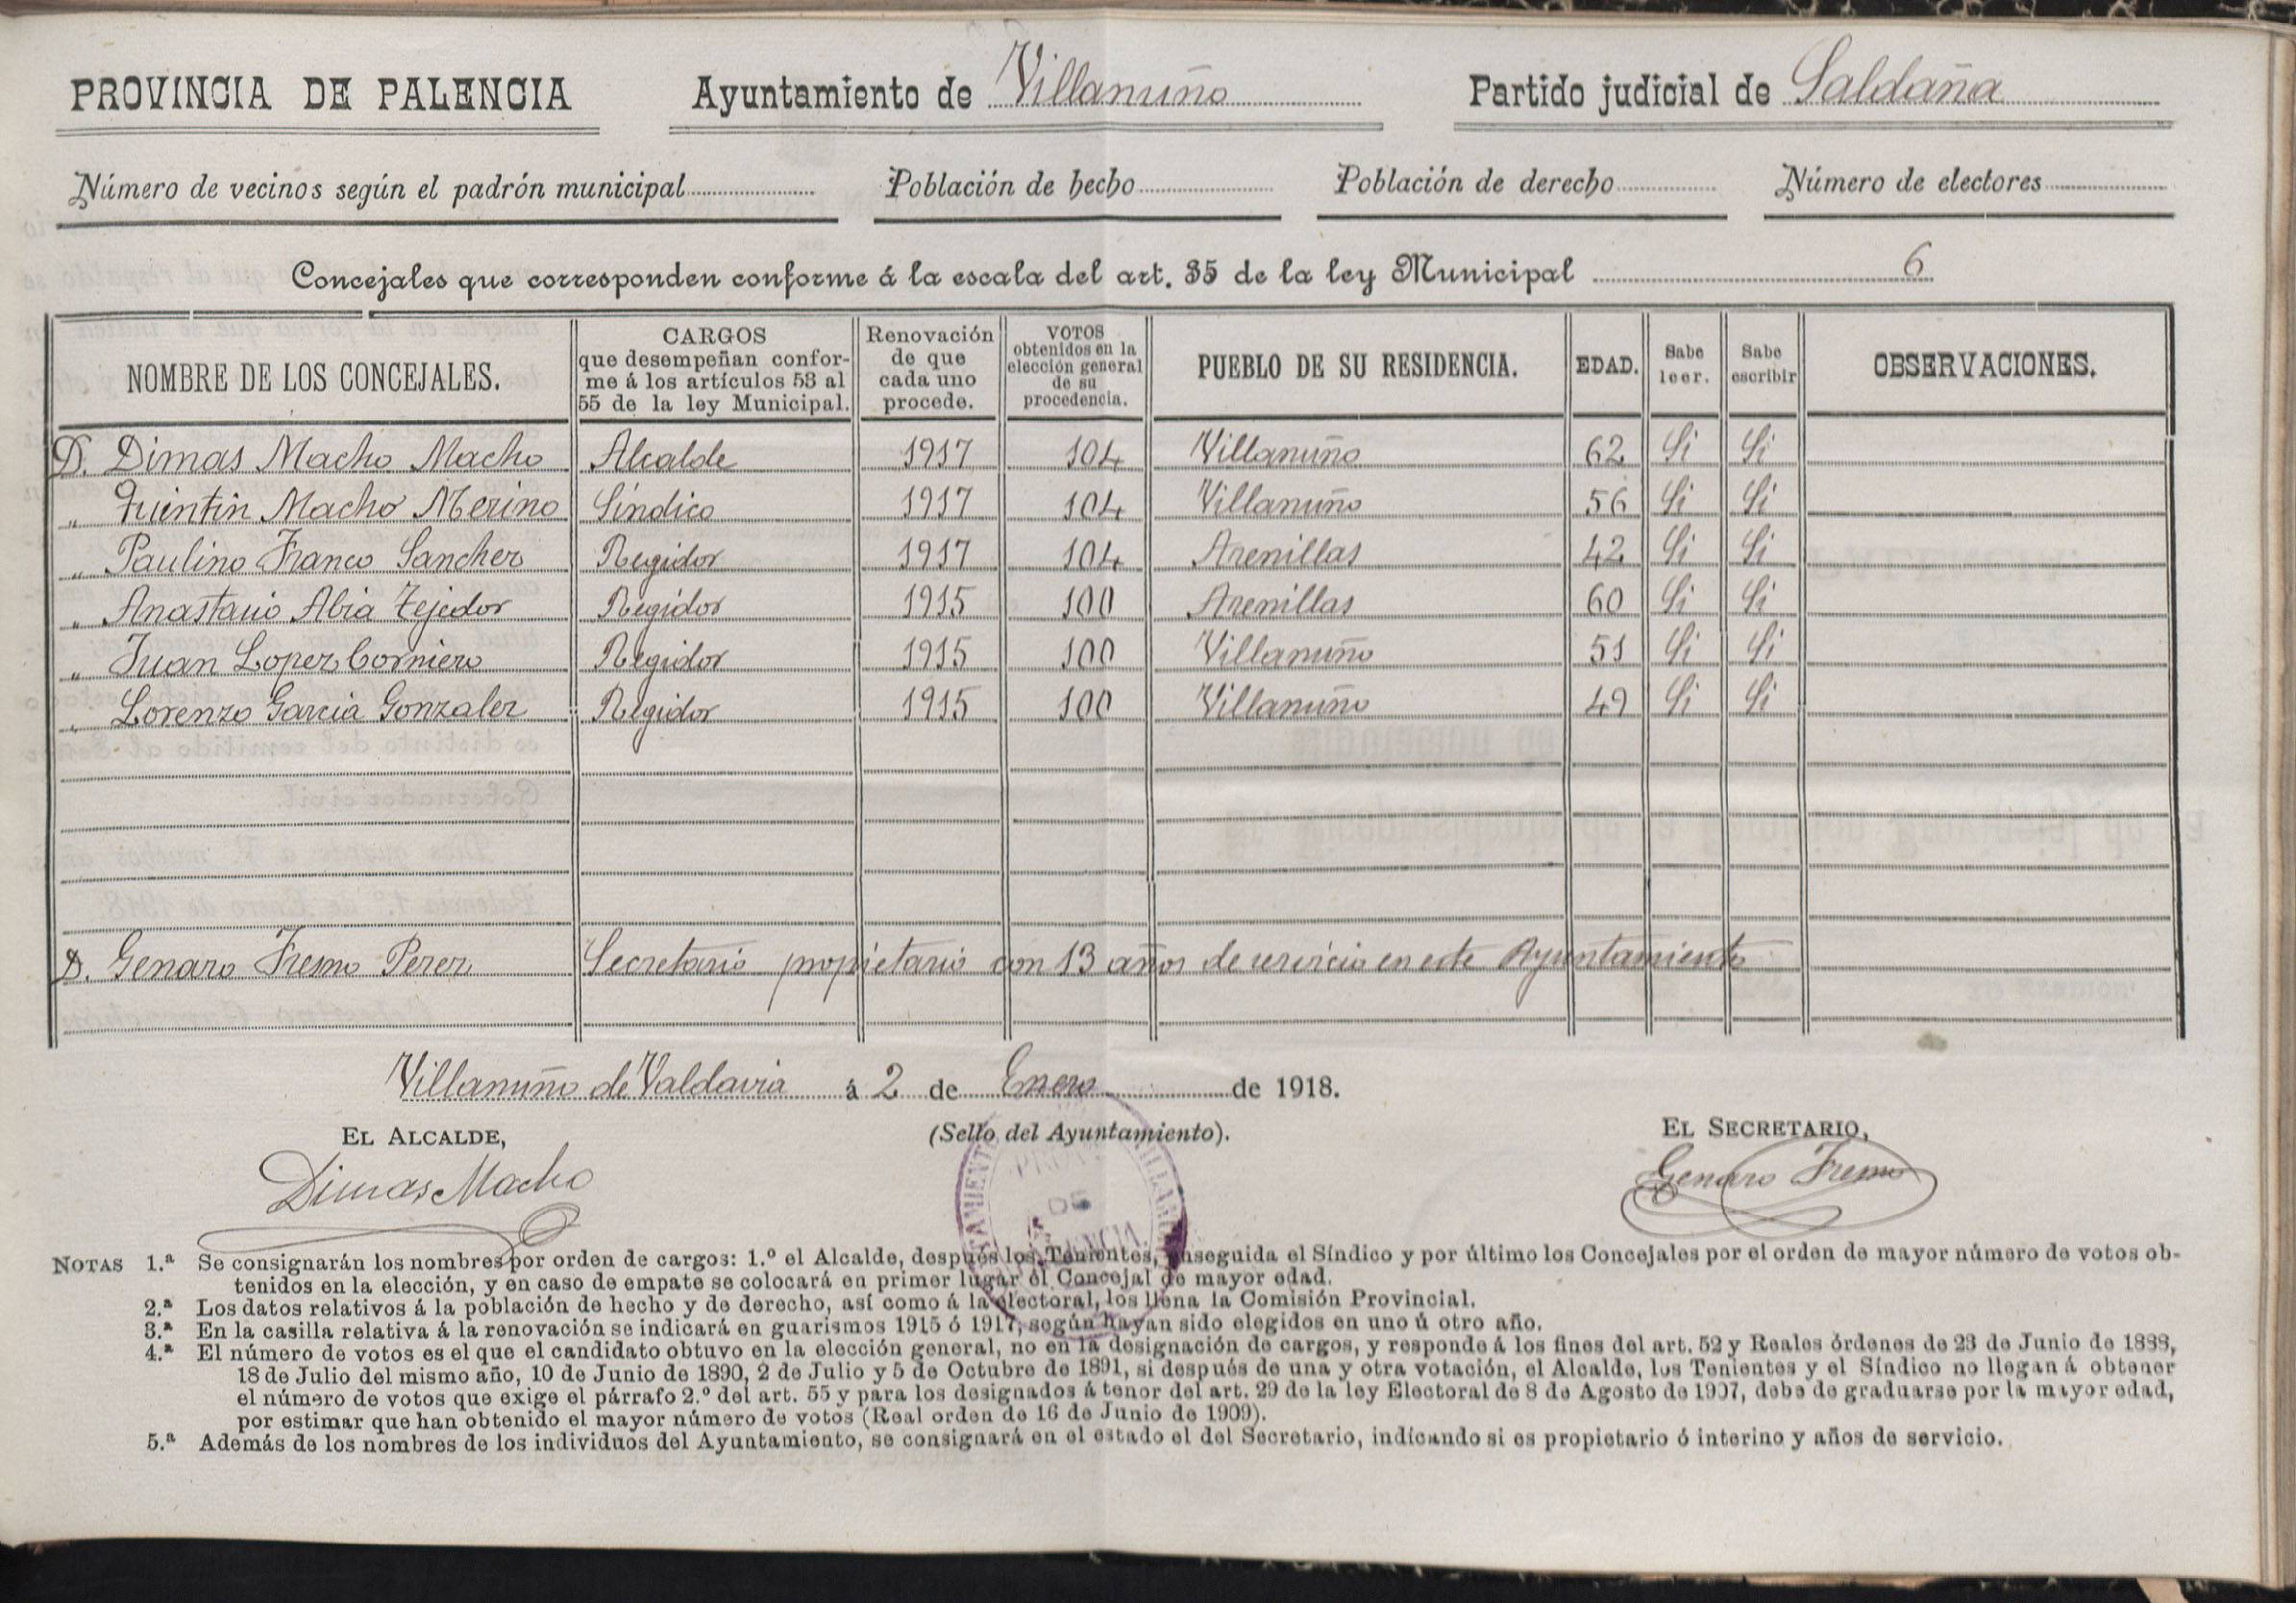 PROVINCIA DE PALENCIA Ayuntamiento de Villanuño Partido judicial de Saldaña
Número de vecinos según el padrón municipal Población de hecho Población de derecho Número de electores
Concejales que corresponden conforme á la escala del art. 35 de la ley Municipal 6
NOMBRE DE LOS CONCEJALES. CARGOS que desempeñan confor- me á los artículos 53 al 55 de la ley Municipal. Renovación de que cada uno procede. VOTOS obtenidos en la elección general de su procedencia. PUEBLO DE SU RESIDENCIA. EDAD. Sabe leer. Sabe escribir OBSERVACIONES.
D. Dimas Macho Macho Alcalde 1917 104 Villanuño 62 Si Si
" Quintin Macho Merino Síndico 1917 104 Villanuño 56 Si Si
" Paulino Franco Sanchez Regidor 1917 104 Arenillas 42 Si Si
" Anastasio Abia Tejedor Regidor 1915 100 Arenillas 60 Si Si
" Juan Lopez Corniero Regidor 1915 100 Villanuño 51 Si Si
" Lorenzo Garcia Gonzalez Regidor 1915 100 Villanuño 49 Si Si
D. Genaro Fresno Perez Secretario propietario con 13 años de servicio en este Ayuntamiento
Villanuño de Valdavia á 2 de Enero de 1918.
EL ALCALDE, (Sello del Ayuntamiento). EL SECRETARIO,
Dimas Macho Genaro Fresno
DE
NOTAS 1.ª Se consignarán los nombres por orden de cargos: 1.º el Alcalde, después los Tenientes, enseguida el Síndico y por último los Concejales por el orden de mayor número de votos ob-
tenidos en la elección, y en caso de empate se colocará en primer lugar el Concejal de mayor edad.
2.ª Los datos relativos á la población de hecho y de derecho, así como á la electoral, los llena la Comisión Provincial.
3.ª En la casilla relativa á la renovación se indicará en guarismos 1915 ó 1917, según hayan sido elegidos en uno ú otro año.
4.ª El número de votos es el que el candidato obtuvo en la elección general, no en la designación de cargos, y responde á los fines del art. 52 y Reales órdenes de 23 de Junio de 1888,
18 de Julio del mismo año, 10 de Junio de 1890, 2 de Julio y 5 de Octubre de 1891, si después de una y otra votación, el Alcalde, los Tenientes y el Síndico no llegan á obtener
el número de votos que exige el párrafo 2.º del art. 55 y para los designados á tenor del art. 29 de la ley Electoral de 8 de Agosto de 1907, debe de graduarse por la mayor edad,
por estimar que han obtenido el mayor número de votos (Real orden de 16 de Junio de 1909).
5.ª Además de los nombres de los individuos del Ayuntamiento, se consignará en el estado el del Secretario, indicando si es propietario ó interino y años de servicio.